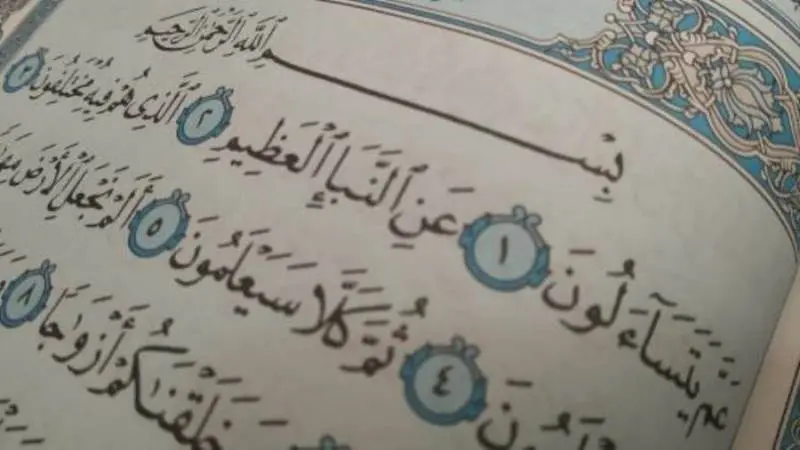 بِسْمِ ٱللَّهِ ٱلرَّحْمَٰنِ ٱلرَّحِيمِ
عَمَّ يَتَسَآءَلُونَ ١ عَنِ ٱلنَّبَإِ ٱلْعَظِيمِ ٢ ٱلَّذِى هُمْ فِيهِ مُخْتَلِفُونَ ٣
٤ ثُمَّ كَلَّا سَيَعْلَمُونَ ٥ أَلَمْ نَجْعَلِ ٱلْأَرْضَ
خَلَقْنَٰكُمْ أَزْوَٰجًا ٨